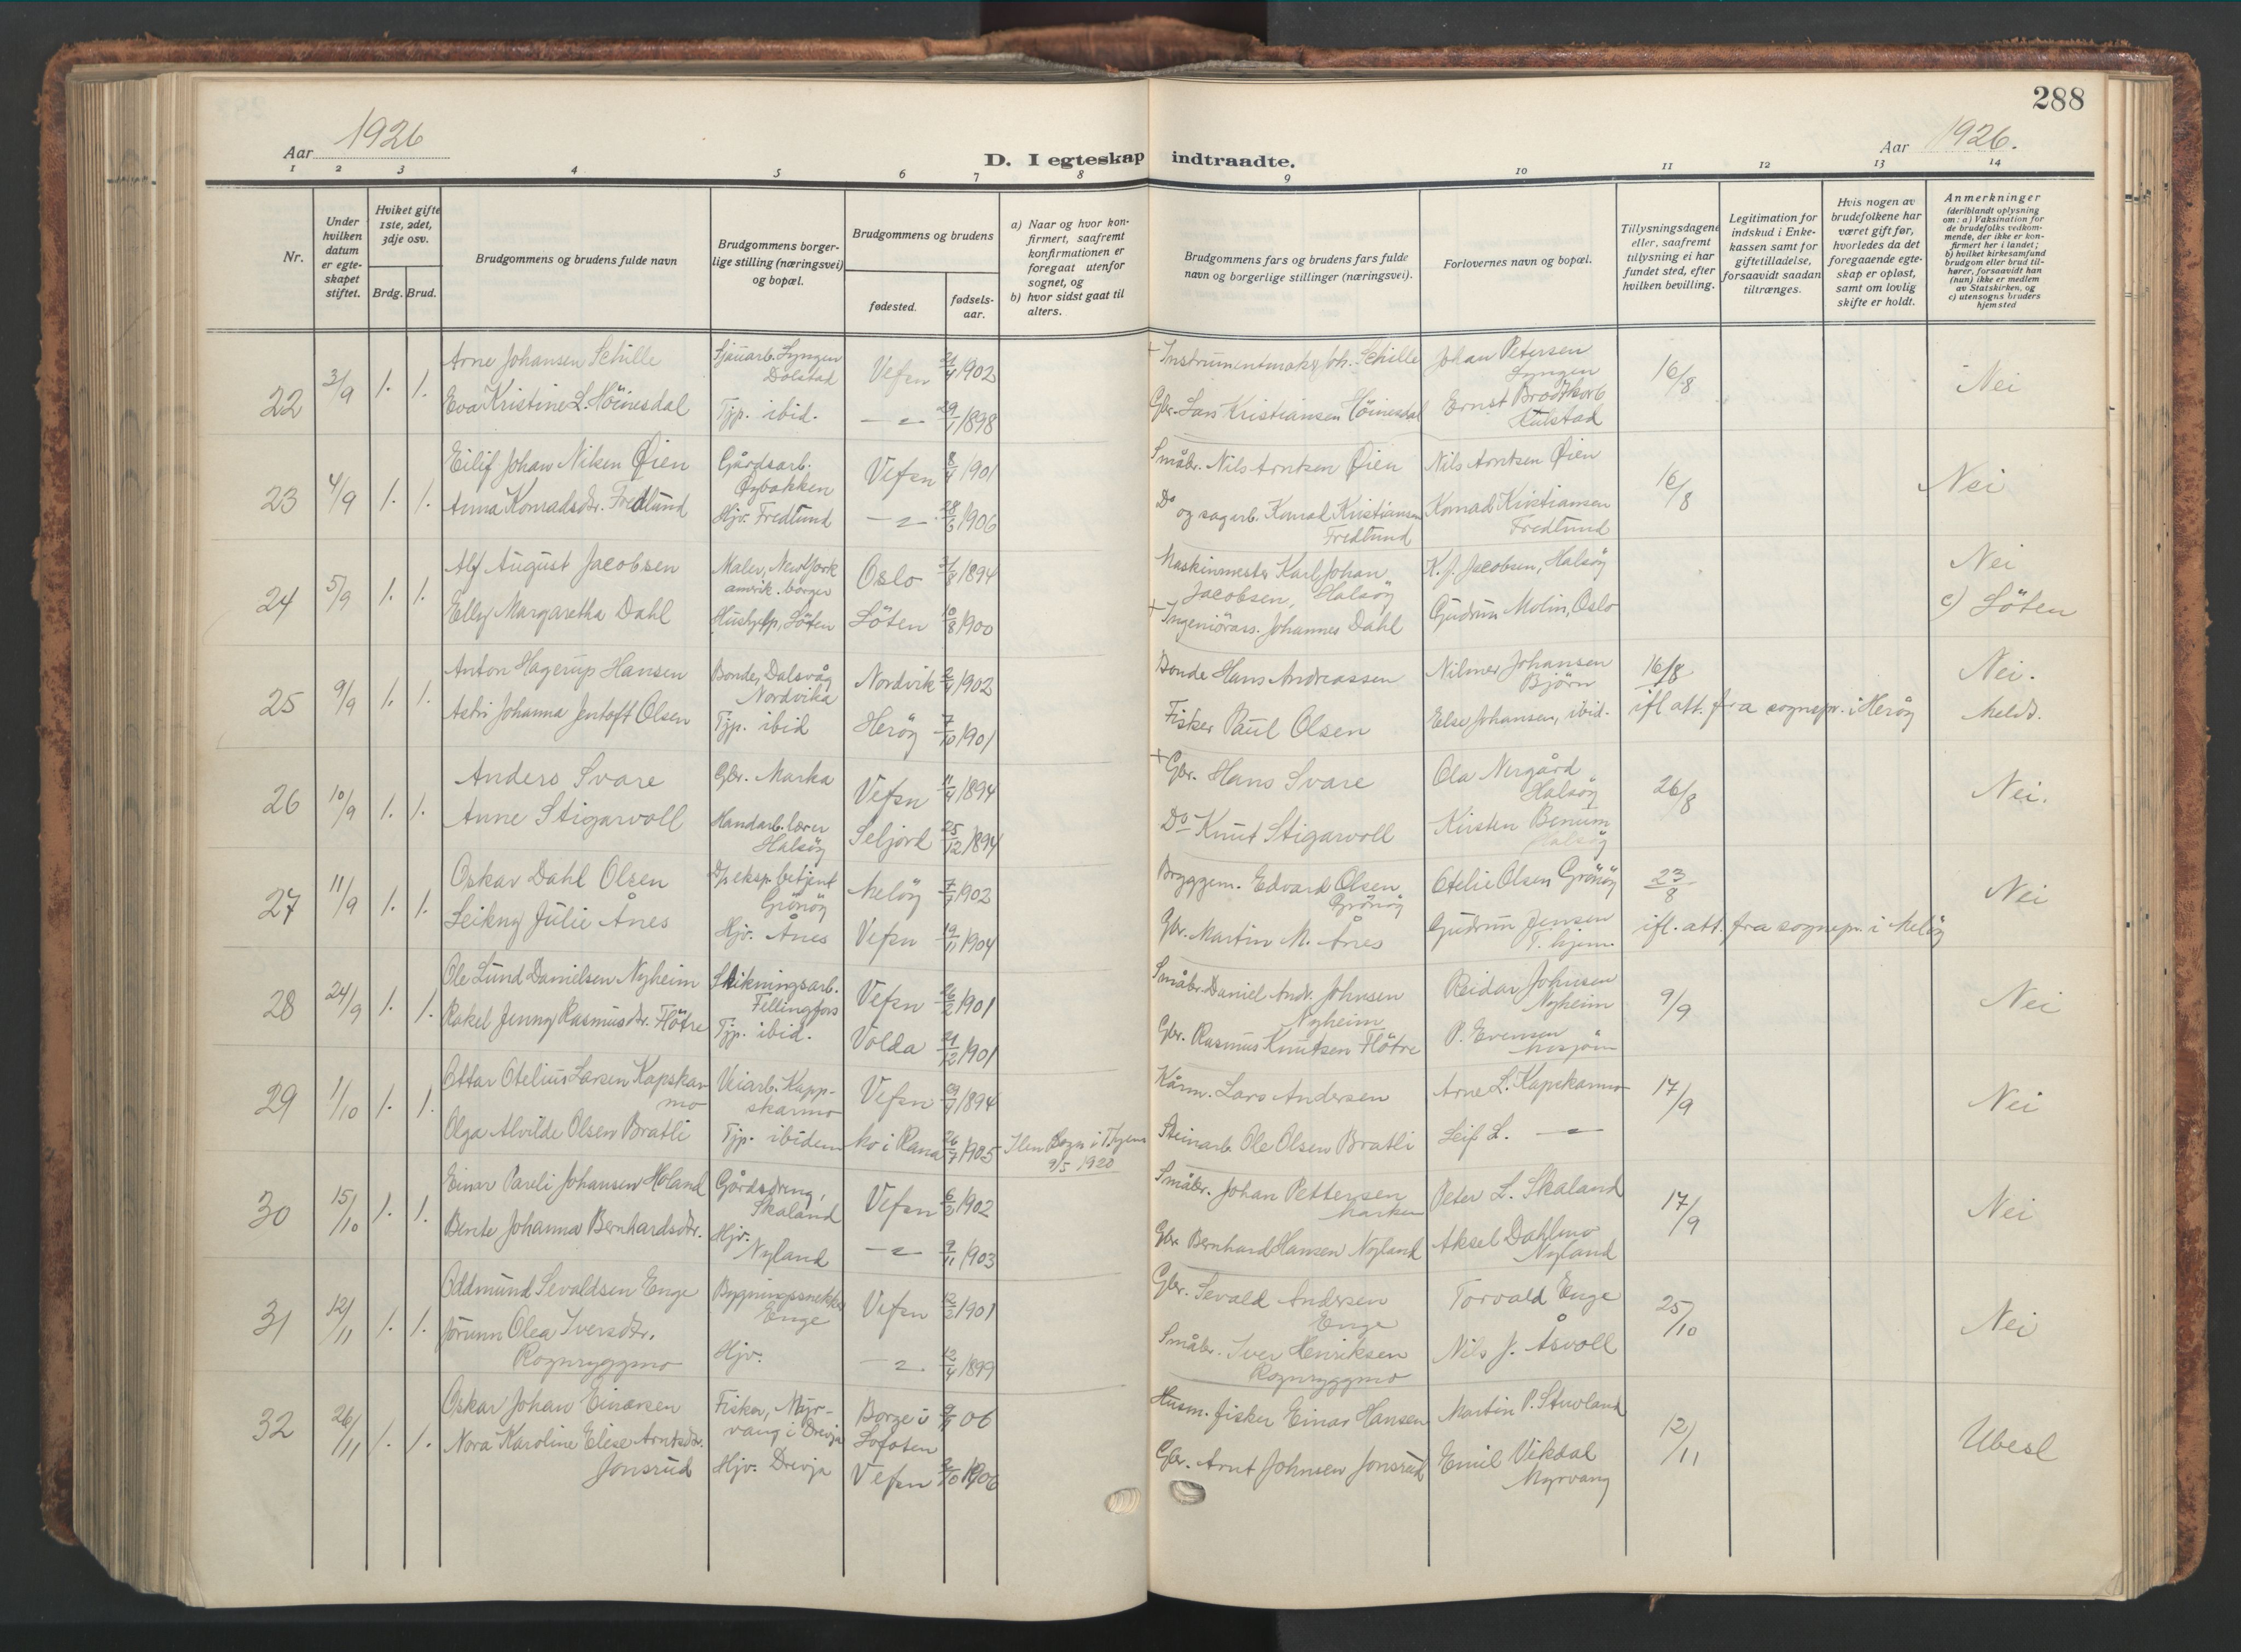 288
Aar 1926
D. I egteskap indtraadte.
Aar 1926.
1 2 3 4 5 6 7 8 9 10 11 12 13 14
Nr.
Under hvilken datum er egteskapet stiftet.
Hviket gifte 1ste, 2det, 3dje osv.
Brdg. Brud.
Brudgommens og brudens fulde navn
Brudgommens borgerlige stilling (næringsvei) og bopæl.
Brudgommens og brudens
fødested.
fødselsaar.
a) Naar og hvor konfirmert, saafremt konfirmationen er foregaat utenfor sognet, og
b) hvor sidst gaat til alters.
Brudgommens fars og brudens fars fulde navn og borgerlige stillinger (næringsvei).
Forlovernes navn og bopæl.
Tillysningsdagene eller, saafremt tillysning ei har fundet sted, efter hvilken bevilling.
Legitimation for indskud i Enkekassen samt for giftetilladelse, forsaavidt saadan tiltrænges.
Hvis nogen av brudefolkene har været gift før, hvorledes da det foregaaende egteskap er opløst, samt om lovlig skifte er holdt.
Anmerkninger (deriblandt oplysning om: a) Vaksination for de brudefolks vedkommende, der ikke er konfirmert her i landet; b) hvilket kirkesamfund brudgom eller brud tilhører, forsaavidt han (hun) ikke er medlem av Statskirken, og c) utensogns bruders hjemsted
22 3/9 1. 1. Arne Johansen Schille Sjauarb. Lyngen Dolstad Vefsn 21/4 1902 + Instrumentmaker Joh. Schille Johan Petersen Lyngen 16/8 Nei
Eva Kristine L. Höinesdal Tjp. ibid. - " - 29/1 1898 Gbr. Lars Kristiansen Höinesdal Ernst Brodtkorb Hulstad
23 4/9 1. 1. Eilif Johan Nilsen Øien Gårdsarb. Øybakken Vefsn 8/4 1901 Småbr. Nils Arntsen Øien Nils Arntsen Øien 16/8 Nei
Anna Konradsdtr. Fredlund Hjv. Fredlund - " - 28/6 1906 Do og sagarb. Konrad Kristiansen Fredlund Konrad Kristiansen Fredlund
24 5/9 1. 1. Alf August Jacobsen Maler, New York amerik. borger Oslo 31/8 1894 Maskinmester Karl Johan Jacobsen, Halsöy K. J. Jacobsen, Halsöy Nei
Elly Margaretha Dahl Hushjelp, Löten Löten 10/8 1900 + Ingeniörass. Johannes Dahl Gudrun Molin, Oslo c) Löten
25 9/9 1. 1. Anton Hagerup Hansen Bonde, Dalsvåg Nordvika Nordvik 2/4 1902 Bonde Hans Andreassen Nilmer Johansen Björn 16/8 Nei.
Astri Johanna Jentoft Olsen Tjp. ibid Heröy 7/10 1901 Fisker Paul Olsen Else Johansen, ibid. ifl att. fra sognepr. i Heröy Meldt.
26 10/9 1. 1. Anders Svare Gbr. Marka Vefsn 11/4 1894 + Gbr. Hans Svare Ola Nergård Halsöy 26/8 Nei.
Anne Stigarvoll Handarb.lærer Halsöy Seljord 25/12 1894 Do Knut Stigarvoll Kirsten Benum Halsöy
27 11/9 1. 1. Oskar Dahl Olsen D/p eksp. betjent Grönöy Melöy 7/7 1902 Bryggem. Edvard Olsen Grönöy Otelie Olsen Grönöy 23/8 Nei
Leikny Julie Ånes Hjv. Ånes Vefsn 19/11 1904 Gbr. Martin M. Ånes Gudrun Jensen T. hjem. ifl. att. fra sognepr. i Melöy
28 24/9 1. 1. Ole Lund Danielsen Nyheim Stikningsarb. Fellingfors Vefsn 26/2 1901 Småbr. Daniel Andr. Johnsen Nyheim Reidar Johnsen Nyheim 9/9 Nei
Rakel Jenny Rasmusdtr. Flötre Tjp. ibid. Volda 21/12 1901 Gbr. Rasmus Knutsen Flötre P. Evensen Mosjöen
29 1/10 1. 1. Ottar Otelius Larsen Kapskarmo Veiarb. Kappskarmo Vefsn 1894 Kårm. Lars Andersen Arne L. Kapskarmo 17/9 Nei
Olga Alvilde Olsen Bratli Tjp. ibidem Mo i Rana 26/7 1905 Ilen Sogn i Thjem 9/5 1920 Steinarb. Ole Olsen Bratli Leif L. - " -
30 15/10 1. 1. Einar Pareli Johansen Holand Gårdsdreng, Skaland Vefsn 6/3 1902 Småbr. Johan Pettersen Marken Peter L. Skaland 17/9 Nei
Berete Johanna Bernhardsdtr. Hjv. Nyland - " - 9/11 1903 Gbr Bernhard Hansen Nyland Aksel Dahlmo Nyland
31 12/11 1. 1. Oddmund Sevaldsen Enge Bygningssnekker Enge Vefsn 12/2 1901 Gbr. Sevald Andersen Enge Torvald Enge 25/10 Nei
Jörunn Olea Iversdtr. Rognryggmo Hjv. - " - 12/4 1899 Småbr. Iver Henriksen Rognryggmo Nils J. Åsvoll
32 26/11 1. 1. Oskar Johan Einarsen Fisker, Myrvang i Drevja Borge i Lofoten 06 Husm. fisker Einar Hansen Martin P. Stuvland 12/11 Ubesl
Nora Karoline Elise Arntsdtr. Jonsrud Hjv. Drevja Vefsn 2/10 1906 Gbr. Arnt Johnsen Jonsrud Emil Vikdal Myrvang